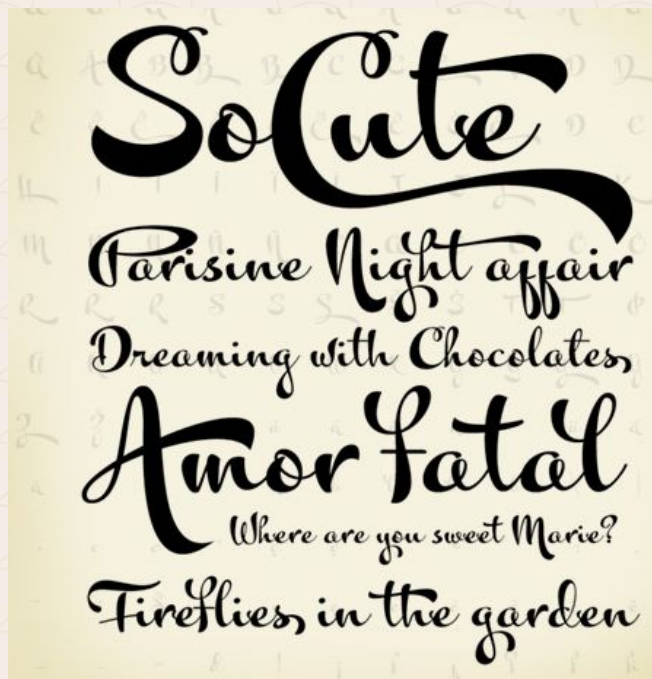 SoCute
Parisine Night affair
Dreaming with Chocolates,
Amor fatal
Where are you sweet Marie?
Fireflies, in the garden